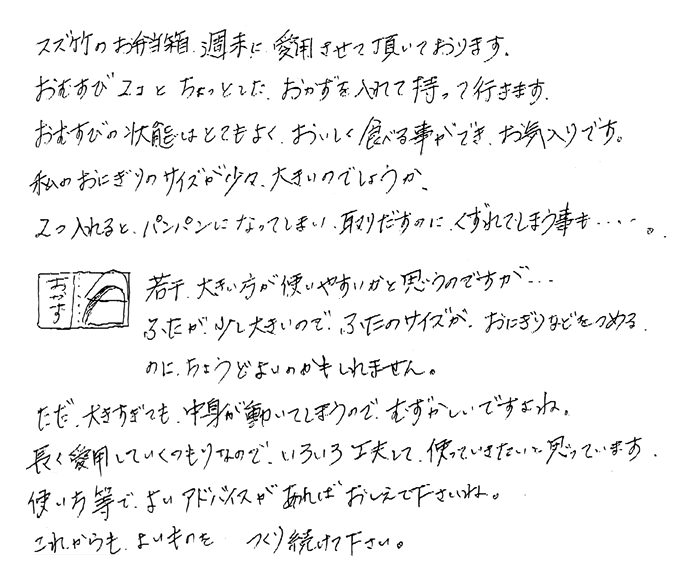 スズ竹のお弁当箱、週末に、愛用させて頂いております。
おむすび2コと ちょっとした、おかずを入れて 持って行きます。
おむすびの状態はとてもよく、おいしく食べる事ができ、お気入りです。
私のおにぎりのサイズが少々、大きいのでしょうか、
2つ入れると、パンパンになってしまい、取りだすのに、くずれてしまう事も・・・・。
おかず
若干、大きい方が使いやすいかと思うのですが・・・
ふたが、少し大きいので、ふたのサイズが、おにぎりなどをつめる、
のに、ちょうどよいのかもしれません。
ただ、大きすぎても、中身が動いてしまうので、むずかしいですよね。
長く愛用していくつもりなので、いろいろ工夫して、使っていきたいと思っています。
使い方等で、よいアドバイスがあればおしえて下さいね。
これからも、よいものを つくり続けて下さい。